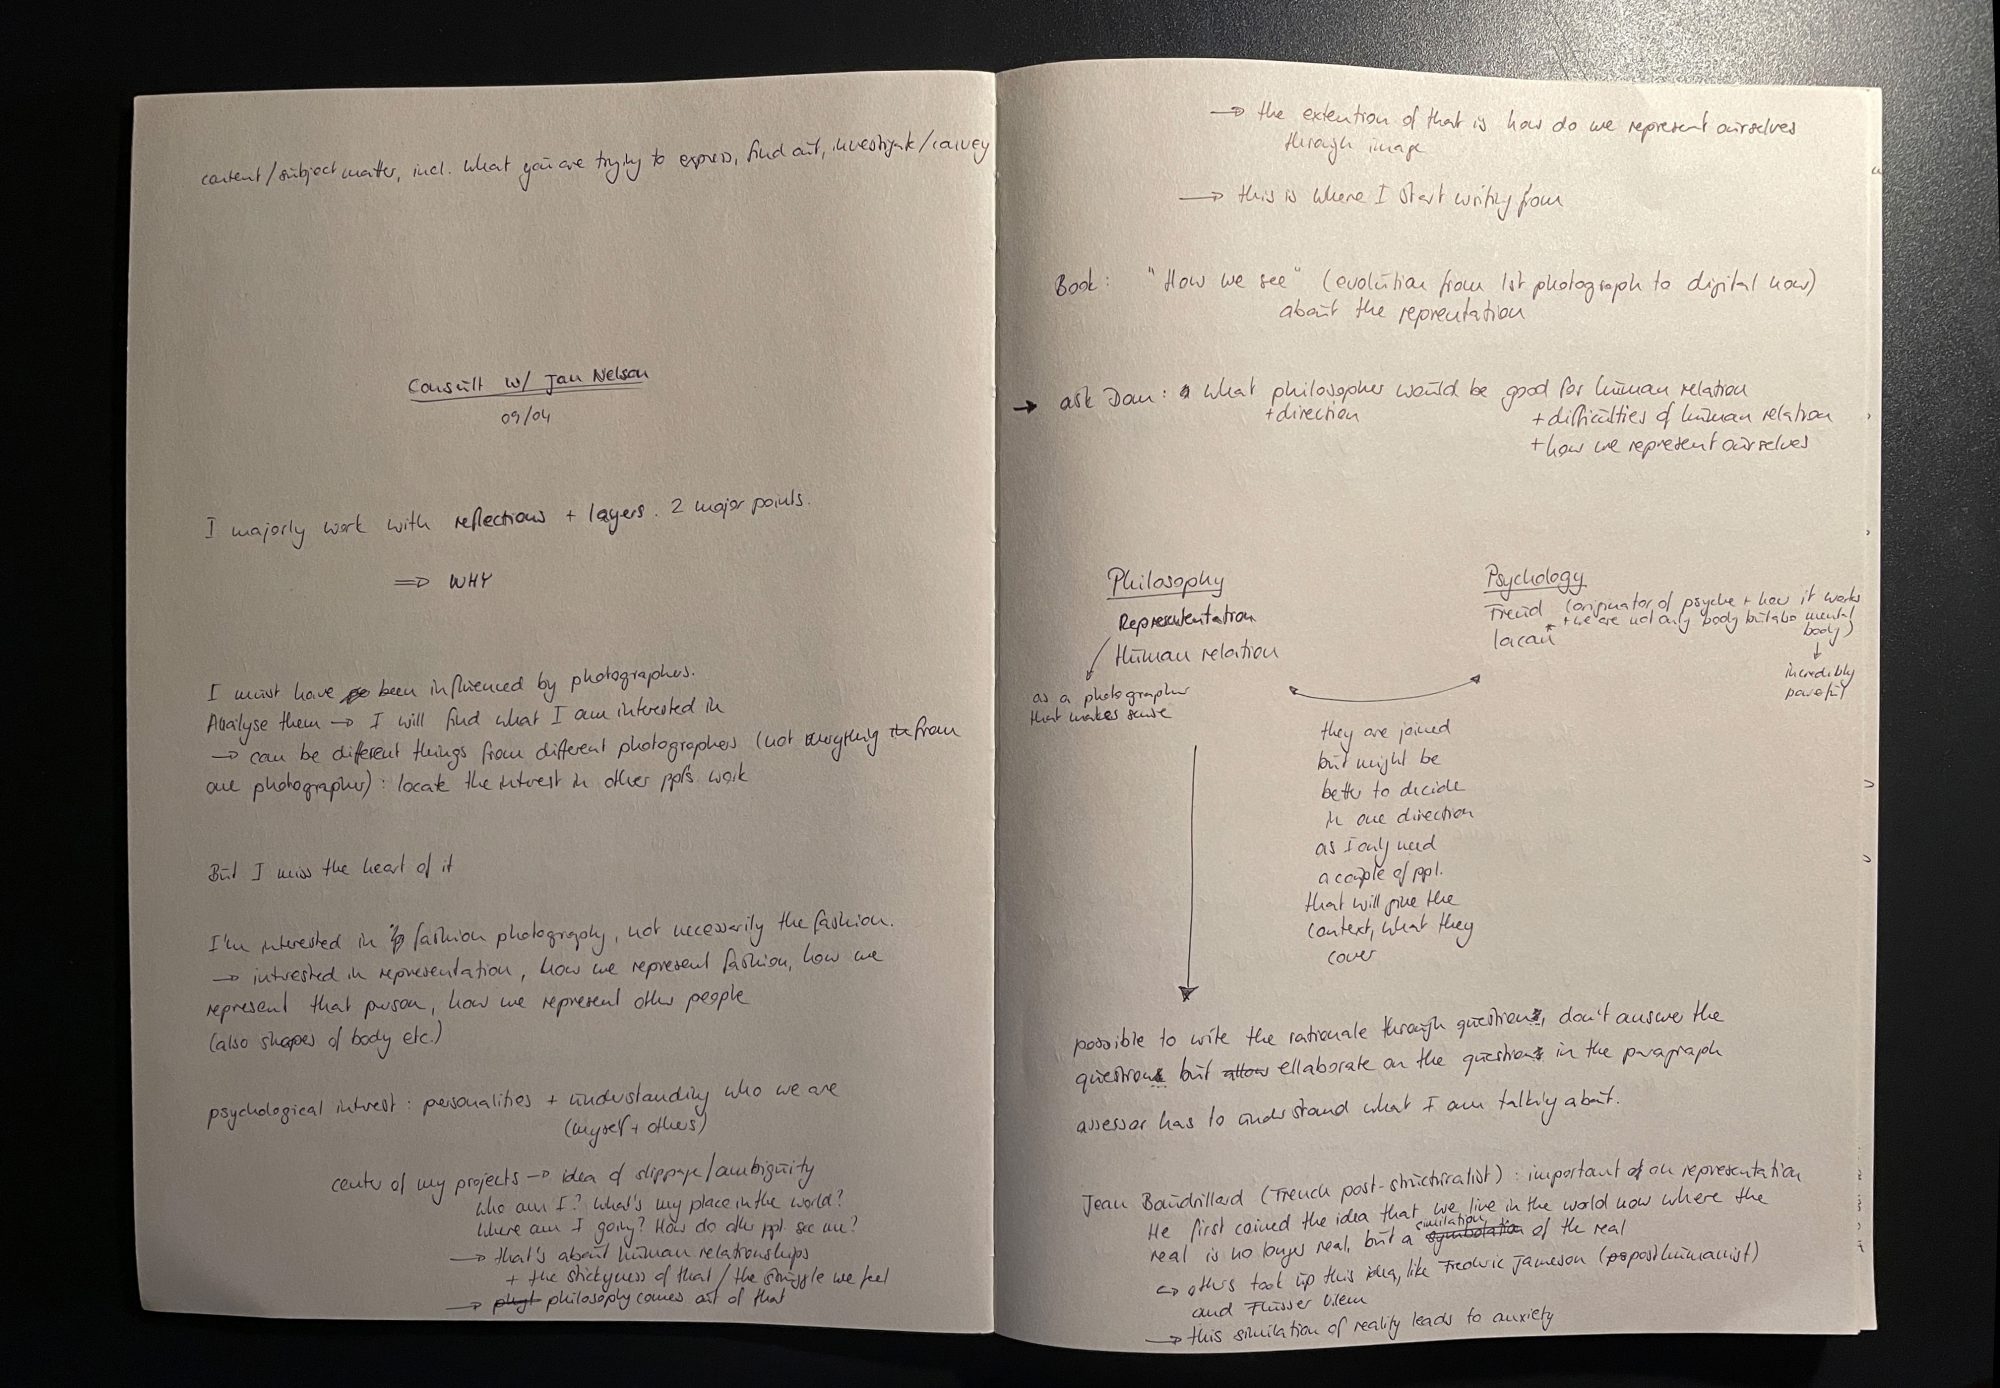 content/subject matter, incl. what you are trying to express, find out, investigate/convey
Consult w/ Jan Nelson
09/04
I majorly work with reflections + layers. 2 major points.
⇒ WHY
I must have been influenced by photographers.
Analyse them → I will find what I am interested in
→ can be different things from different photographers (not everything from
one photographer) : locate the intrest in other ppl's work
But I miss the heart of it
I'm interested in fashion photography, not necessarily the fashion.
→ intrested in representation, how we represent fashion, how we
represent that person, how we represent other people
(also shapes of body etc.)
psychological intrest : personalities + understanding who we are
(myself + others)
center of my projects → idea of slippage/ambiguity
who am I? What's my place in the world?
Where am I going? How do other ppl. see me?
→ that's about human relationships
+ the stickyness of that / the struggle we feel
→ philosophy comes out of that
→ the extention of that is how do we represent ourselves
through image
→ this is where I start writing from
Book : "How we see" (evolution from 1st photograph to digital now)
about the reprentation
→ ask Dan : what philosopher would be good for human relation
+ direction + difficulties of human relation
+ how we represent ourselves
Philosophy
Representation
Human relation
as a photographer
that makes sense
Psychology
Freud (originator of psyche + how it works
+ we are not only body but also mental
body)
lacan
↓
incredibly
powerful
they are joined
but might be
better to decide
in one direction
as I only need
a couple of ppl.
that will give the
context, what they
cover
possible to write the rationale through questions, don't answer the
questions but ellaborate on the questions in the paragraph
assessor has to understand what I am talking about.
Jean Baudrillard (French post-structuralist) : important on representation
He first coined the idea that we live in the world now where the
real is no longer real, but a similation of the real
↪ others took up this idea, like Frederic Jameson (posthumanist)
and Flusser Vilem
→ this similation of reality leads to anxiety